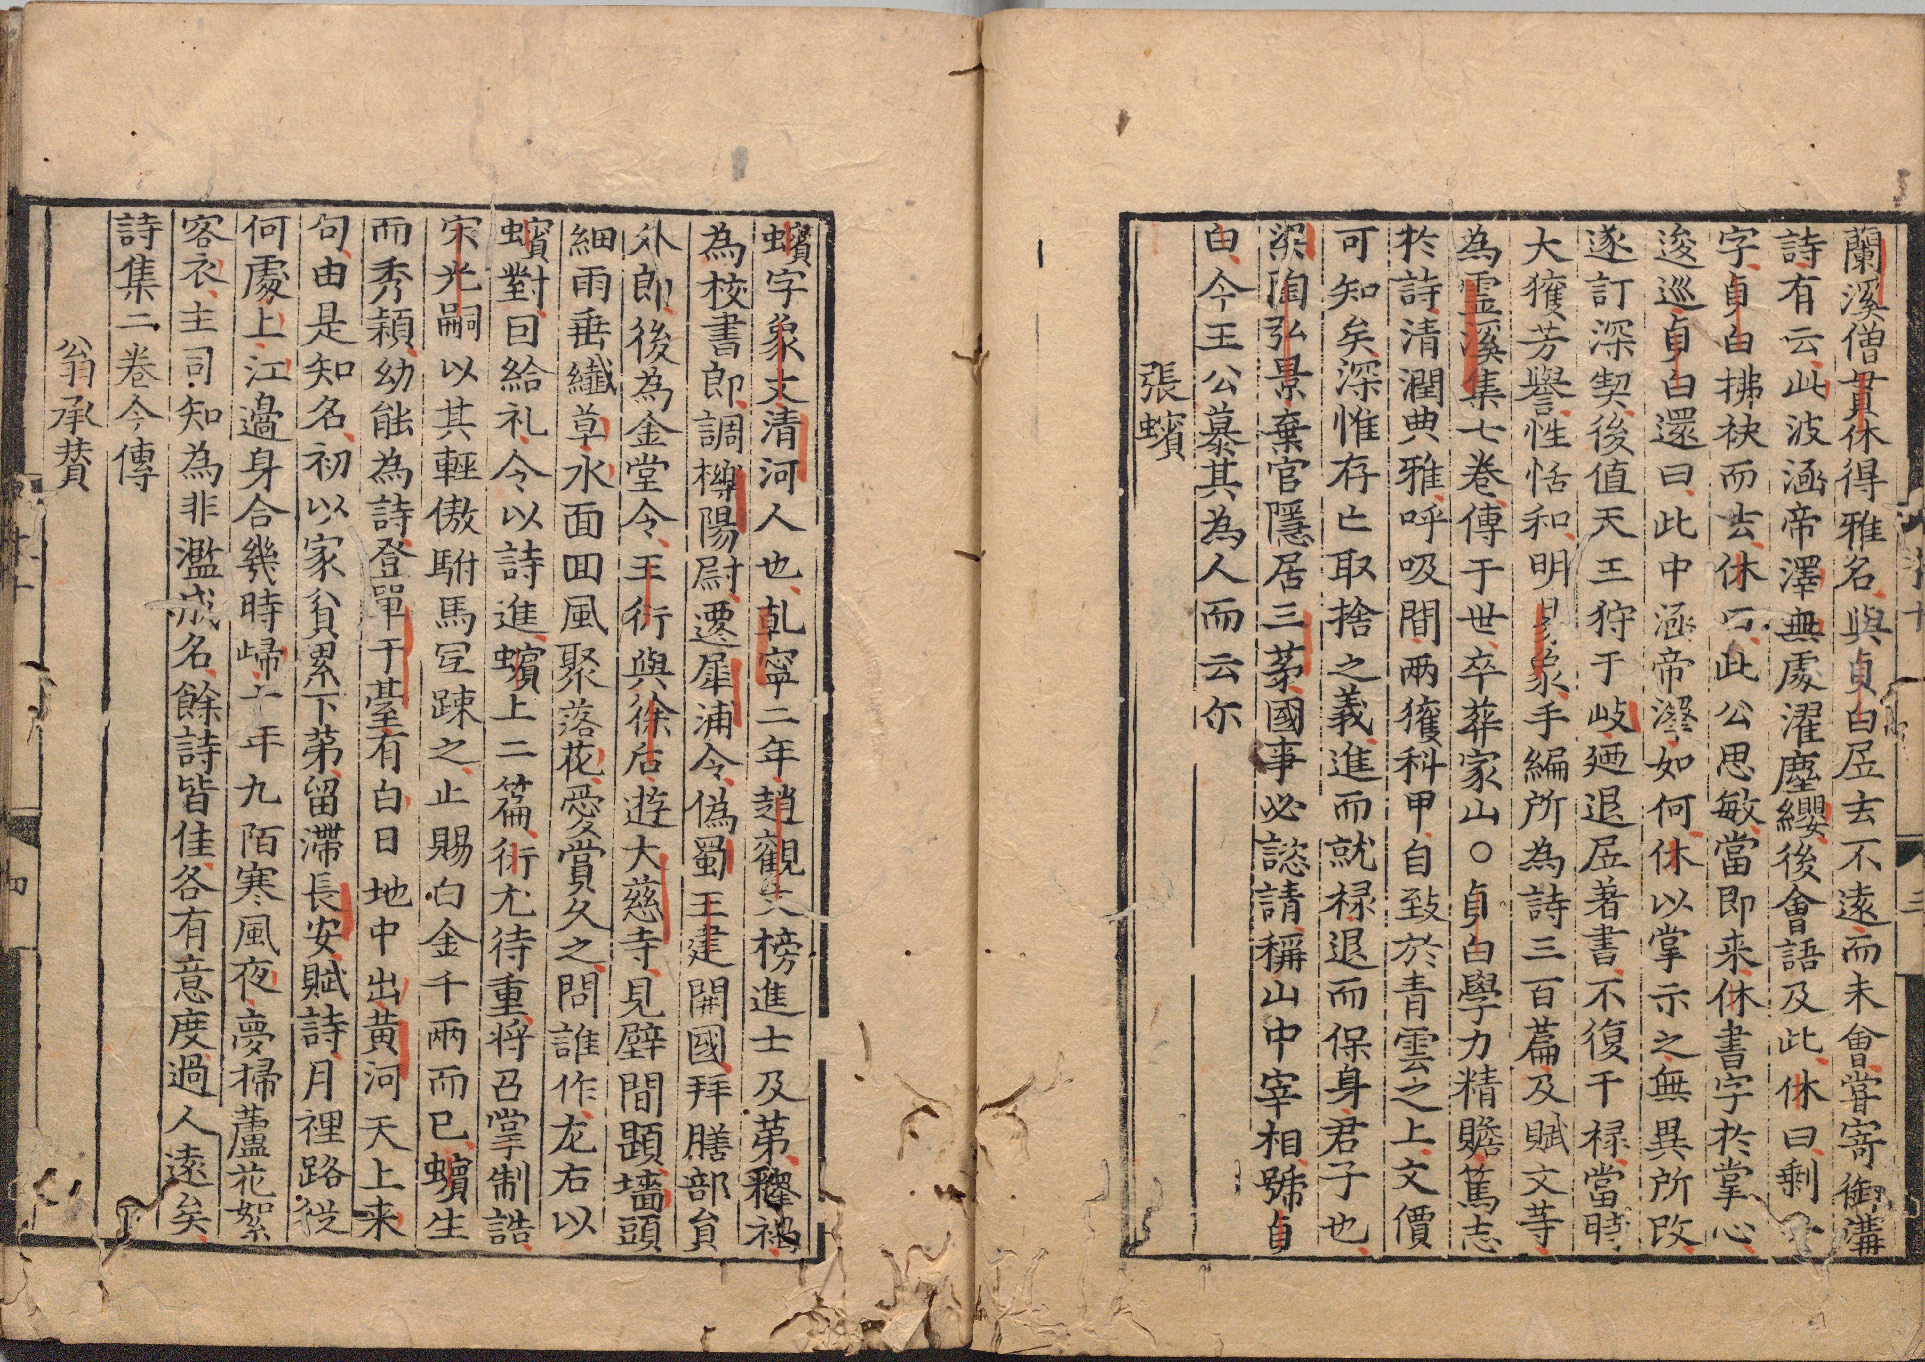 蘭溪僧貫休得雅名與貞白居去不遠而未會甞寄御溝
詩有云此波涵帝澤無處濯塵纓後會語及此休曰剩一
字貞白拂袂而去休曰此公思敏當即来休書字扵掌心
逡巡貞白還曰此中涵帝澤如何休以掌示之無異所改
遂訂深契後值天王狩于岐廼退居著書不復干禄當時
大獲芳譽性恬和明易象手編所為詩三百篇及賦文等
為靈溪集七卷傳于世卒葬家山○貞白學力精贍篤志
扵詩清潤典雅呼吸間兩獲科甲自致於青雲之上文價
可知矣深惟存亡取捨之義進而就禄退而保身君子也
梁陶弘景棄官隱居三茅國事必諮請稱山中宰相號貞
白今王公慕其為人而云尔
張蠙
蠙字象文清河人也乹寧二年趙觀文榜進士及第釋褐
為校書郎調櫟陽尉遷犀浦令偽蜀王建開國拜膳部員
外郎後為金堂令王衍與徐后遊大慈寺見壁間題墻頭
細雨垂纖草水面回風聚落花愛賞久之問誰作左右以
蠙對因給礼令以詩進蠙上二篇衍尤待重将召掌制誥
宋光嗣以其輕傲駙馬宜踈之止賜白金千兩而已蠙生
而秀穎幼能為詩登單于臺有白日地中出黄河天上来
句由是知名初以家貧累下第留滯長安賦詩月裡路從
何處上江邊身合幾時歸十年九陌寒風夜夢掃蘆花絮
客衣主司知為非濫成名餘詩皆佳各有意度過人遠矣
詩集二卷今傳
翁承贊